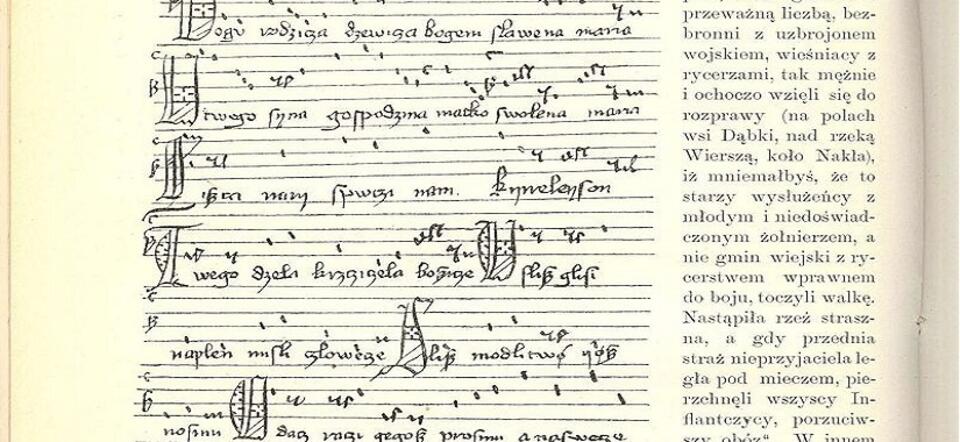 Bogu rodzicza dzewicza bogem slawena maria
U twego syna gospodzina matko swolena maria
nam spwczi nam. Kyrieleyson
Twego dzela krzcziczela bozicze Uslisz glosi
naplen misli czlowecze Slisz modlitwo
nosimi raczi gegosz prosimi a naswecze
przeważną liczbą, bez-
bronni z uzbrojonem
wojskiem, wieśniacy z
rycerzami, tak mężnie
i ochoczo wzięli się do
rozprawy (na polach
wsi Dąbki, nad rzeką
Wierszą, koło Nakła),
iż mniemałbyś, że to
starzy wysłużeńcy z
młodym i niedoświad-
czonym żołnierzem, a
nie gmin wiejski z ry-
cerstwem wprawnem
do boju, toczyli walkę.
Nastąpiła rzeź strasz-
na, a gdy przednia
straż nieprzyjaciela le-
gła pod mieczem, pie-
rzchnęli wszyscy In-
flantczycy, porzuciw-
szy obóz“. W innem